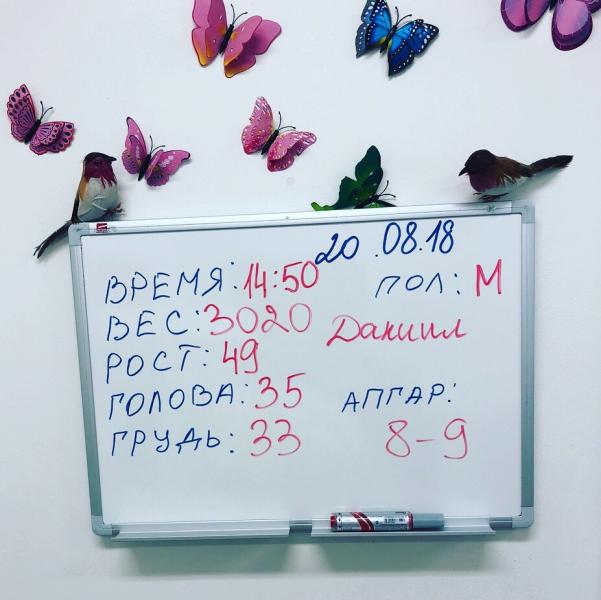 20.08.18
ВРЕМЯ: 14:50 ПОЛ: М
ВЕС: 3020 Даниил
РОСТ: 49
ГОЛОВА: 35 АПГАР:
ГРУДЬ: 33 8-9